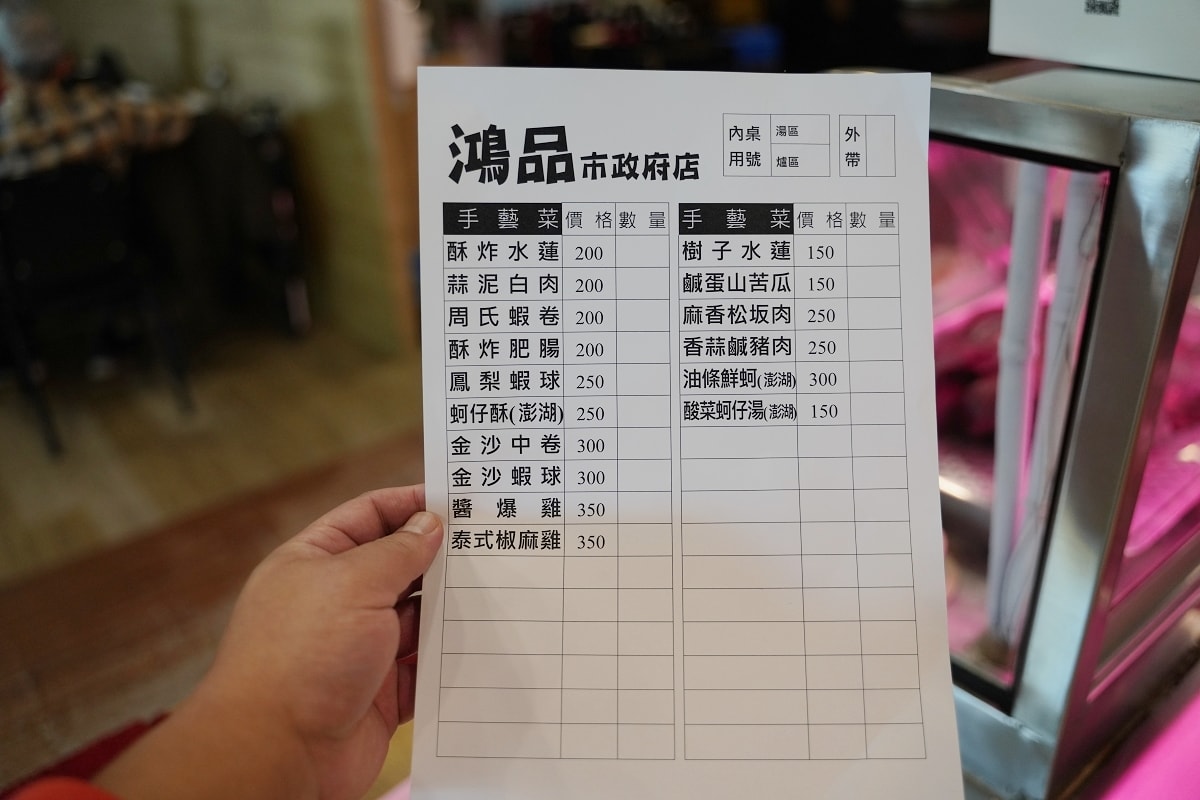 鴻品市政府店
內用 桌號 湯區
爐區
外帶
手藝菜 價格 數量
酥炸水蓮 200
蒜泥白肉 200
周氏蝦卷 200
酥炸肥腸 200
鳳梨蝦球 250
蚵仔酥(澎湖) 250
金沙中卷 300
金沙蝦球 300
醬爆雞 350
泰式椒麻雞 350
手藝菜 價格 數量
樹子水蓮 150
鹹蛋山苦瓜 150
麻香松坂肉 250
香蒜鹹豬肉 250
油條鮮蚵(澎湖) 300
酸菜蚵仔湯(澎湖) 150